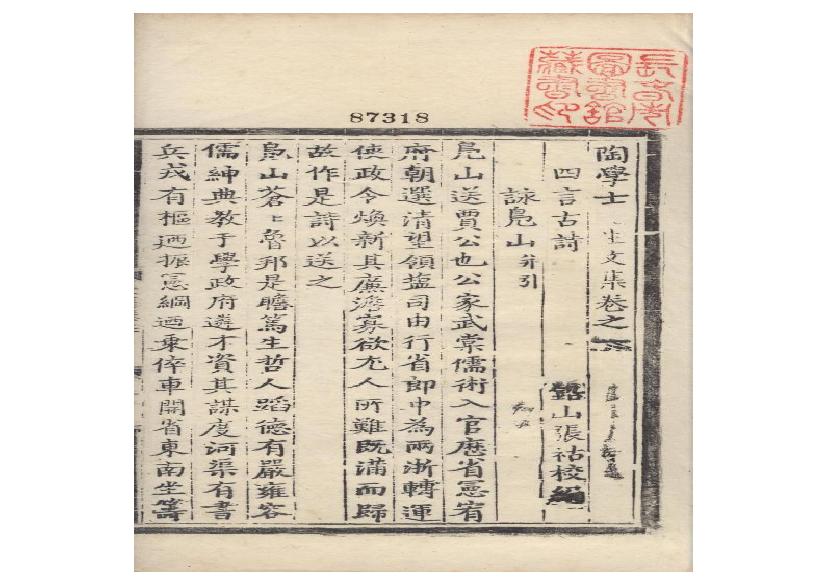 87318
陶學士 生文集卷之
四言古詩
鉛山張祜校編
詠鳧山 并引
鳧山送賈公也公家武棠儒術入官歷省憲宥
府朝選清望領塩司由行省郎中為兩浙轉運
使政令煥新其廉澹寡欲尤人所難既滿而歸
故作是詩以送之
鳧山蒼〻魯邦是瞻篤生哲人蹈德有嚴雍容
儒紳典教于學政府遴才資其謀度河渠有書
兵戎有樞迺振憲綱迺乘倅車開省東南坐籌